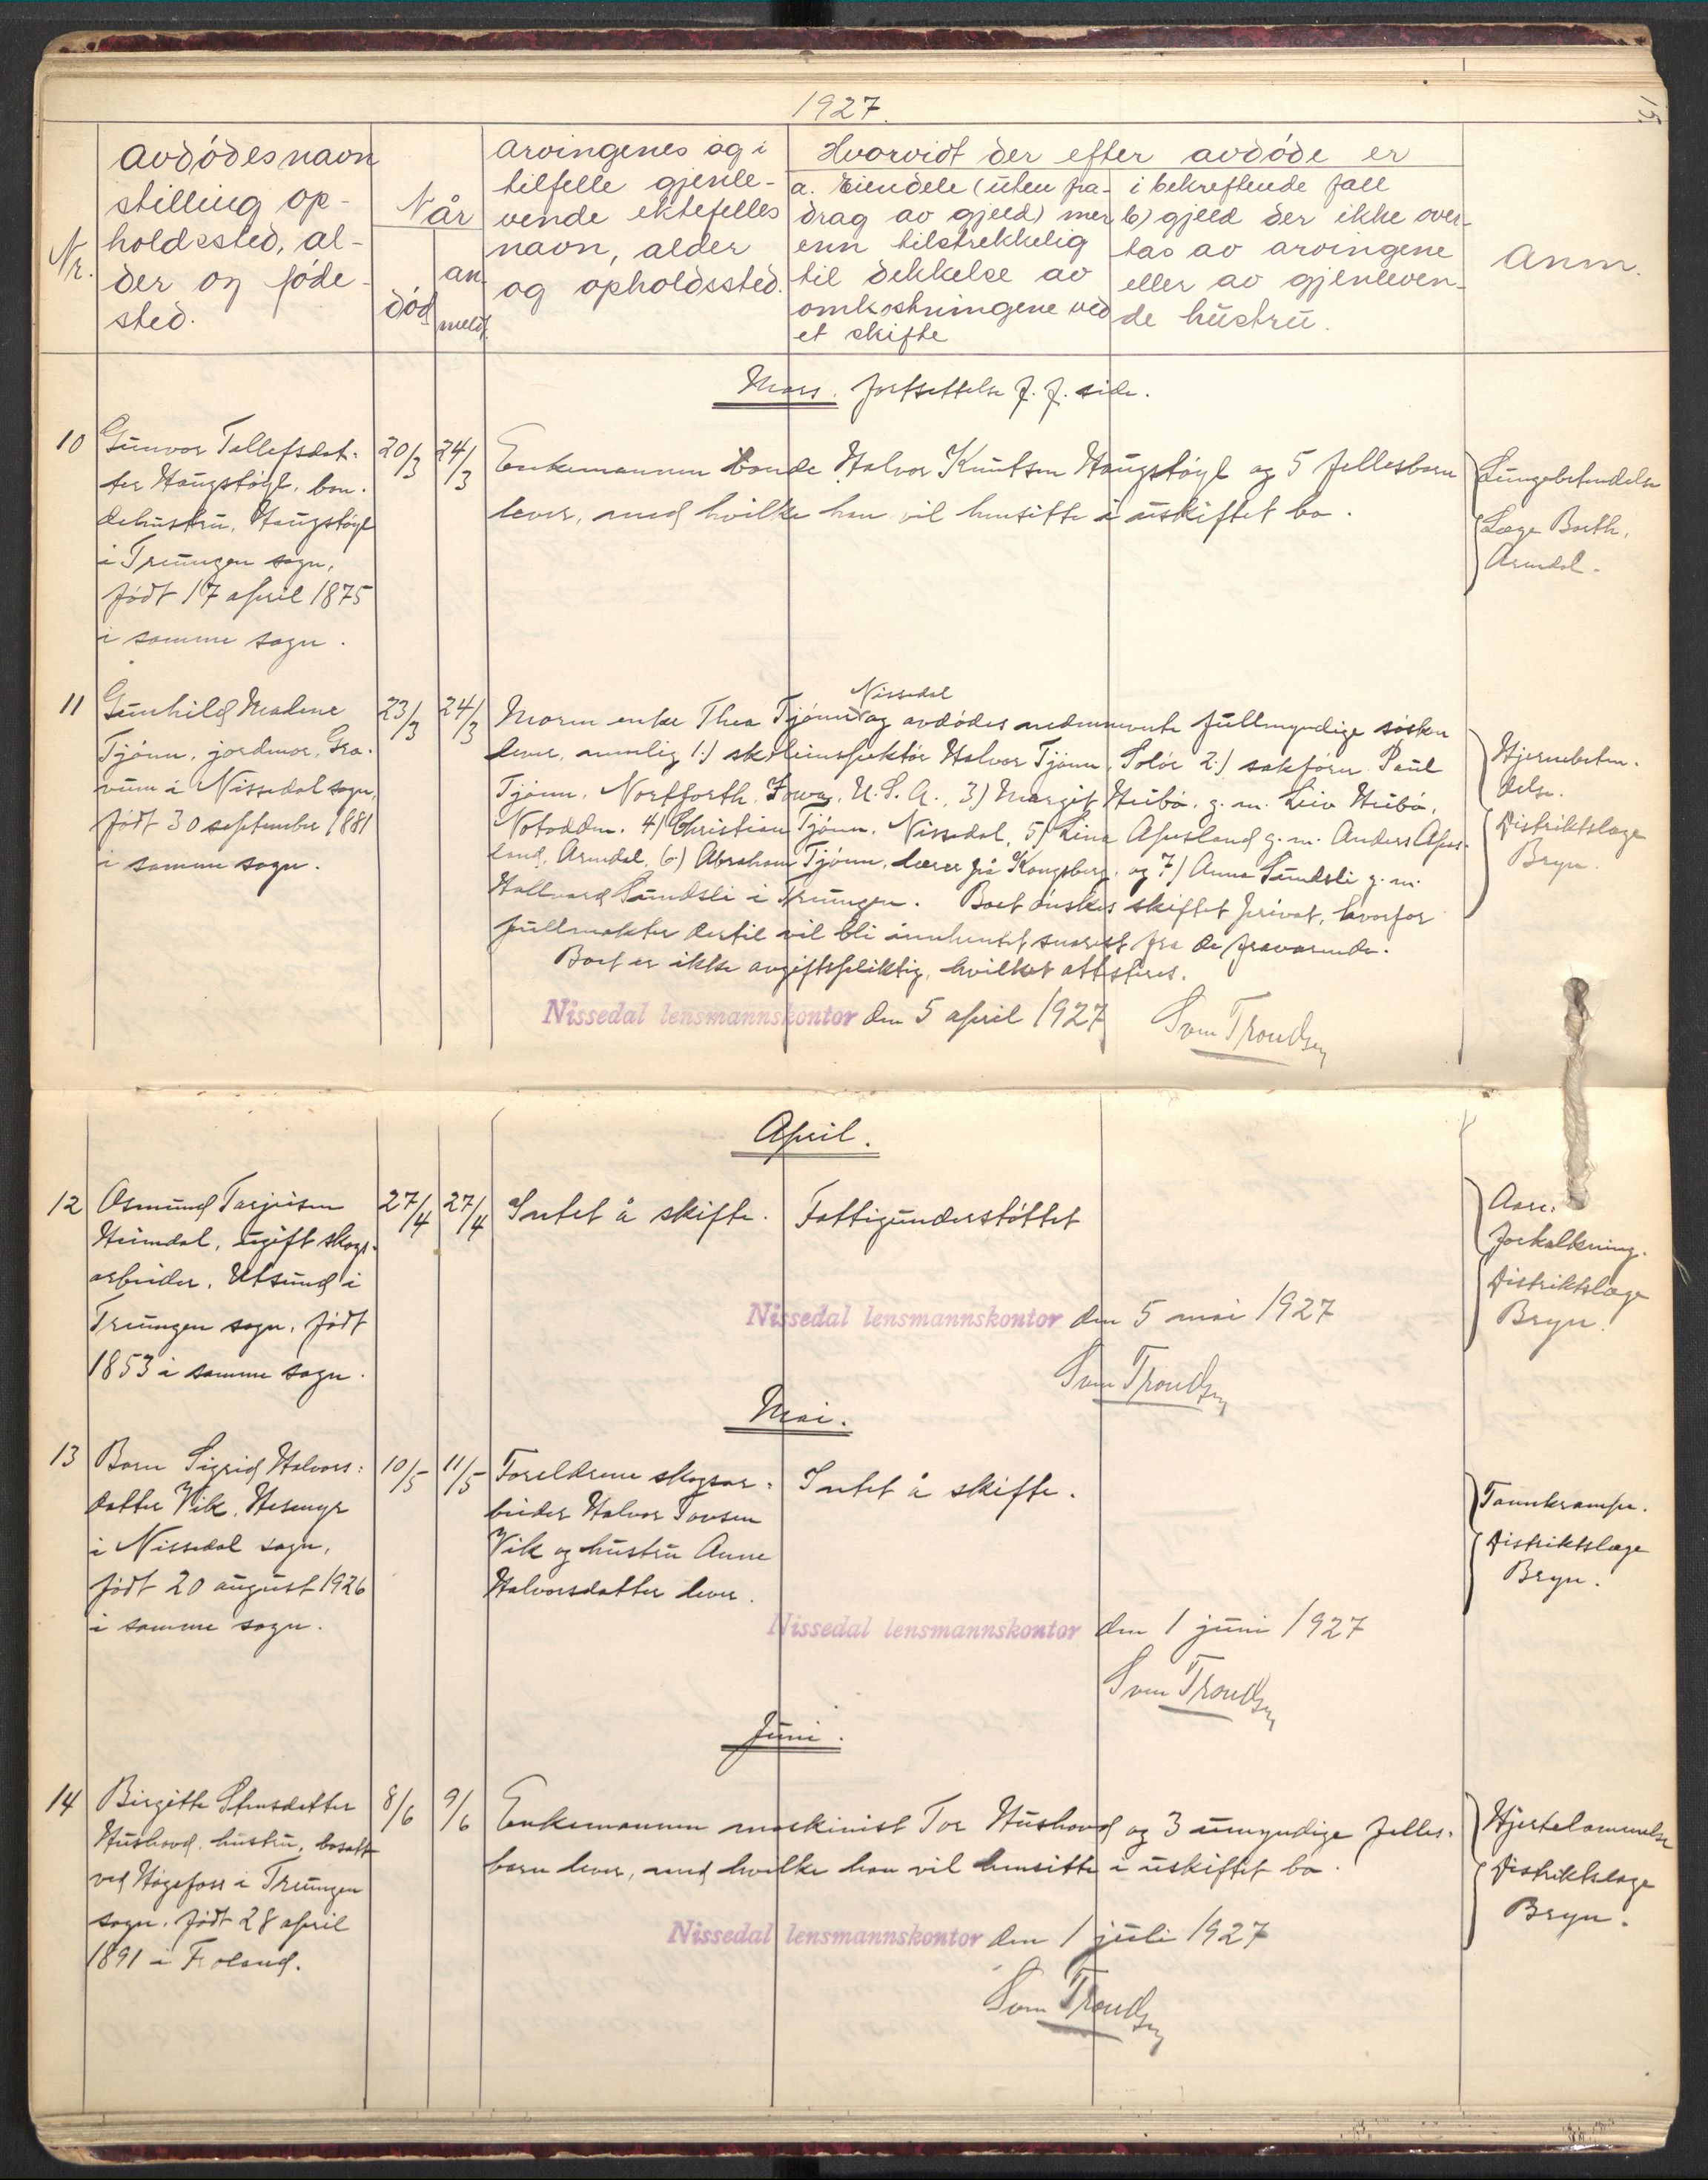 1927.
15.
Nr.
Avdødes navn
stilling op-
holdssted, al-
der og føde-
sted.
Når
død
an
meldt.
Arvingenes og i
tilfelle gjenle-
vende ektefelles
navn, alder
og opholdssted.
Hvorvidt der efter avdøde er
a. Eiendele (uten fra-
drag av gjeld) mer
enn tilstrekkelig
til dekkelse av
omkostningene ved
et skifte
i bekreftende fall
b) gjeld der ikke over-
tas av arvingene
eller av gjenleven-
de hustru.
Anm.
Mars. fortsettelse f. f. side.
10
Gunvor Tellefsdat-
ter Haugstøyl, bon-
dehustru, Haugstøyl
i Treungen sogn,
født 17 april 1875
i samme sogn.
20/3
24/3
Enkemannen bonde Halvor Knutsen Haugstøyl og 5 fellesbarn
lever, med hvilke han vil hensitte i uskiftet bo.
Lungebetendelse
Læge Borth,
Arendal.
11
Gunhild Madene
Tjønn, jordmor, Gra-
vum i Nissedal sogn,
født 30 september 1881
i samme sogn.
23/3
24/3
Nissedal
Moren enke Thea Tjønn og avdødes nedennevnte fullmyndige søsken
lever, nemlig 1.) skoleinspektør Halvor Tjønn, Solør 2.) sakfører Paul
Tjønn, Nortforth, Iowa, U.S.A., 3) Margit Heibø, g.m. Leiv Heibø,
Notodden. 4) Christian Tjønn, Nissedal, 5) Lina Apesland g.m. Anders Apes-
land, Arendal, 6.) Abraham Tjønn, lærer på Kongsberg, og 7) Anna Sundsli g.m.
Hallvard Sundsli i Treungen. Boet ønskes skiftet privat, hvorfor
fullmakter dertil vil bli innhentet snarest fra de fraværende.
Boet er ikke avgiftspliktig, hvilket attesteres.
Hjernebeten-
delse.
Distriktslæge
Bryn.
Nissedal lensmannskontor den 5 april 1927
Sven Trondsen
April.
12
Osmund Tarjeisen
Heimdal, ugift skogs-
arbeider, Utsund i
Treungen sogn, født
1853 i samme sogn.
27/4
27/4
Intet å skifte. Fattigunderstøttet
Aare-
forkalkning.
Distriktslæge
Bryn.
Nissedal lensmannskontor den 5 mai 1927
Sven Trondsen
Mai.
13
Barn Sigrid Halvors-
datter Vik, Hesmyr
i Nissedal sogn,
født 20 august 1926
i samme sogn.
10/5
11/5
Foreldrene skogsar-
beider Halvor Tovsen
Vik og hustru Anne
Halvorsdatter lever.
Intet å skifte.
Tannkrampe.
Distriktslæge
Bryn.
Nissedal lensmannskontor den 1 juni 1927
Sven Trondsen
Juni.
14
Birgitte Stensdatter
Hushovd, hustru, bosatt
ved Høgefoss i Treungen
sogn, født 28 april
1891 i Froland.
8/6
9/6
Enkemannen maskinist Tor Hushovd og 3 umyndige felles-
barn lever, med hvilke han vil hensitte i uskiftet bo.
Hjertelammelse
Distriktslæge
Bryn.
Nissedal lensmannskontor den 1 juli 1927
Sven Trondsen